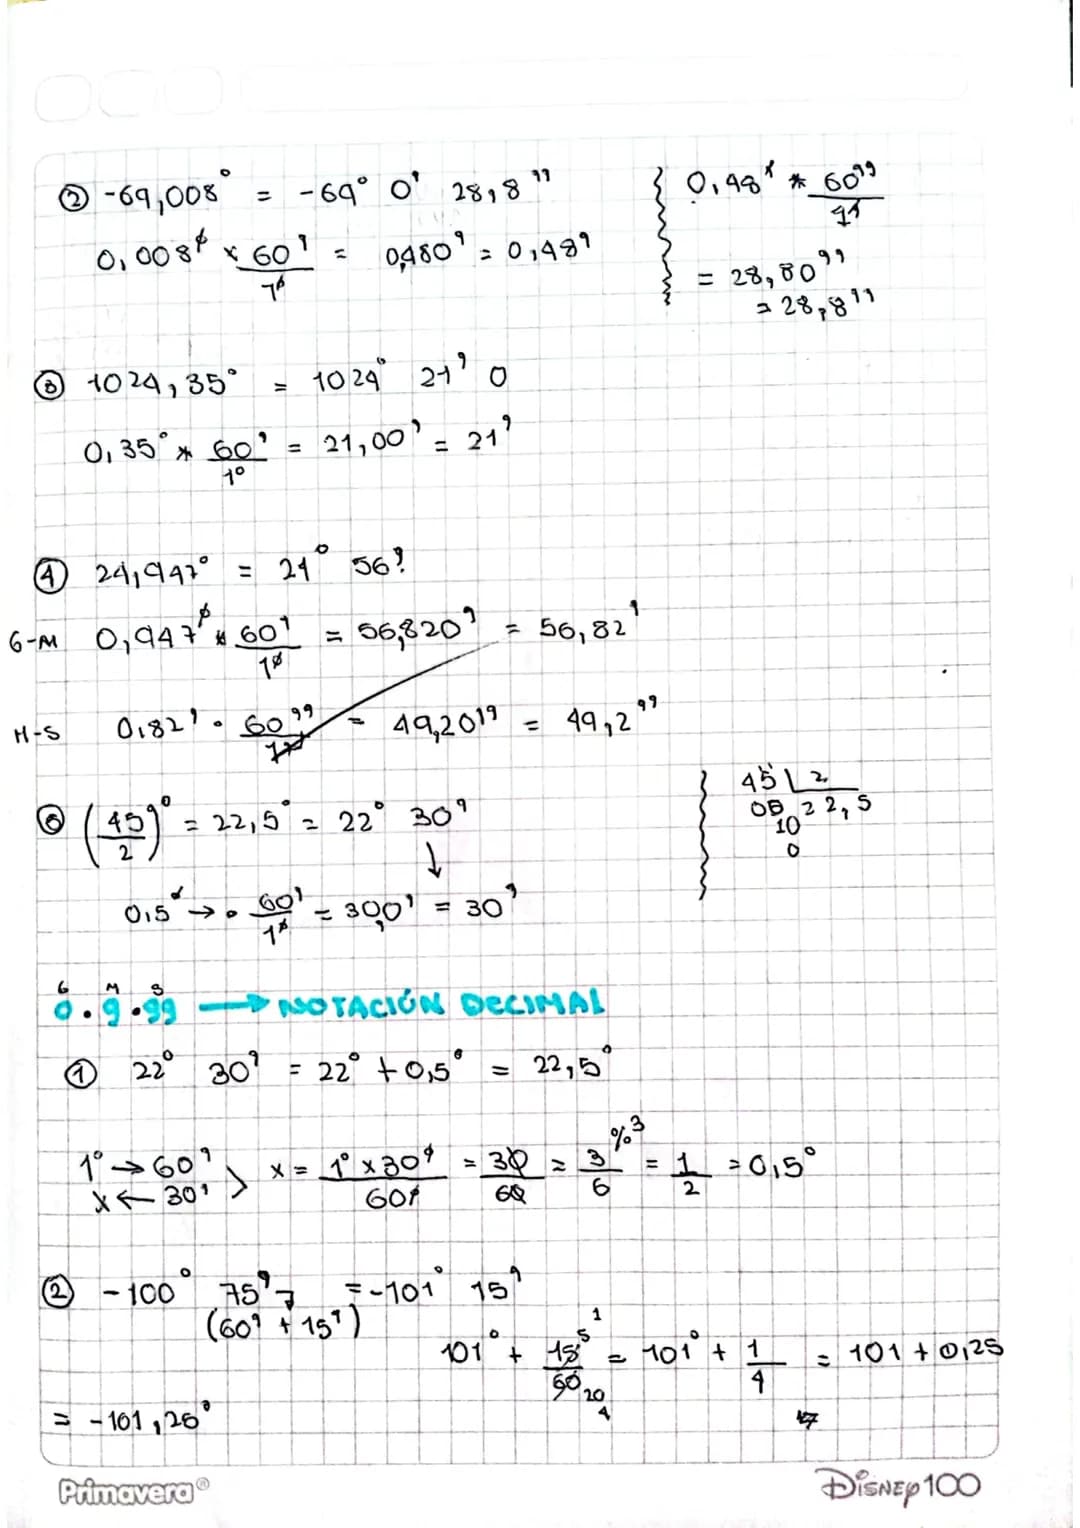 ② -69,008° = -69° 0' 28,8''
0,008° × 60'/1° = 0,480' = 0,48'
0,48' * 60''/1'
= 28,80''
= 28,8''
③ 1024,35° = 1024° 21' 0
0,35° * 60'/1° = 21,00' = 21'
④ 24,947° = 24° 56'
G-M 0,947° * 60'/1° = 56,820' = 56,82'
M-S 0,82' · 60''/1' = 49,20'' = 49,2''
(45/2)° = 22,5° = 22° 30'
45 | 2
05 22,5
10
0
0,5° → · 60'/1° = 30,0' = 30'
G M S
° . ' . '' → NOTACIÓN DECIMAL
① 22° 30' = 22° + 0,5° = 22,5°
1° → 60'
x ← 30'
x = 1° × 30'/60' = 30/60 = 3/6 %3 = 1/2 = 0,5°
② -100° 75' = -101° 15'
(60' + 15')
101° + 15/60 5 1 20 4 = 101° + 1/4 = 101 + 0,25
= -101,25°
Primavera®
Disney100